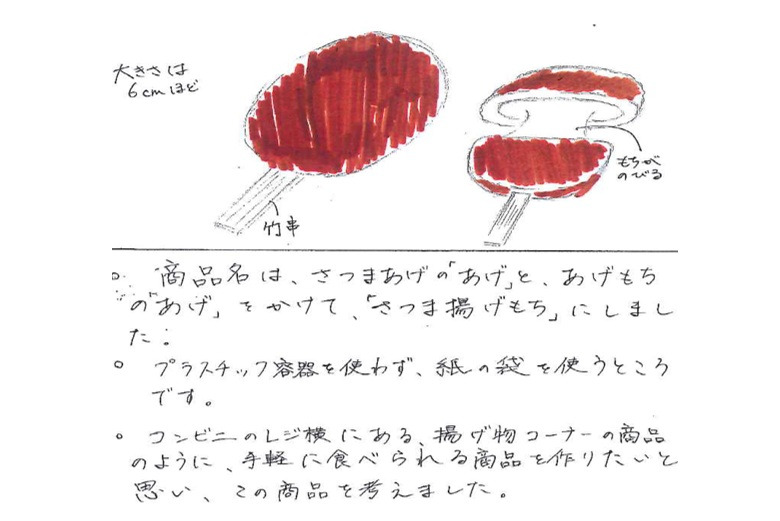 大きさは
6cmほど
竹串
もちが
のびる
。 商品名は、さつまあげの「あげ」と、あげもち
の「あげ」をかけて、「さつま揚げもち」にしまし
た。
。 プラスチック容器を使わず、紙の袋を使うところ
です。
。 コンビニのレジ横にある、揚げ物コーナーの商品
のように、手軽に食べられる商品を作りたいと
思い、この商品を考えました。